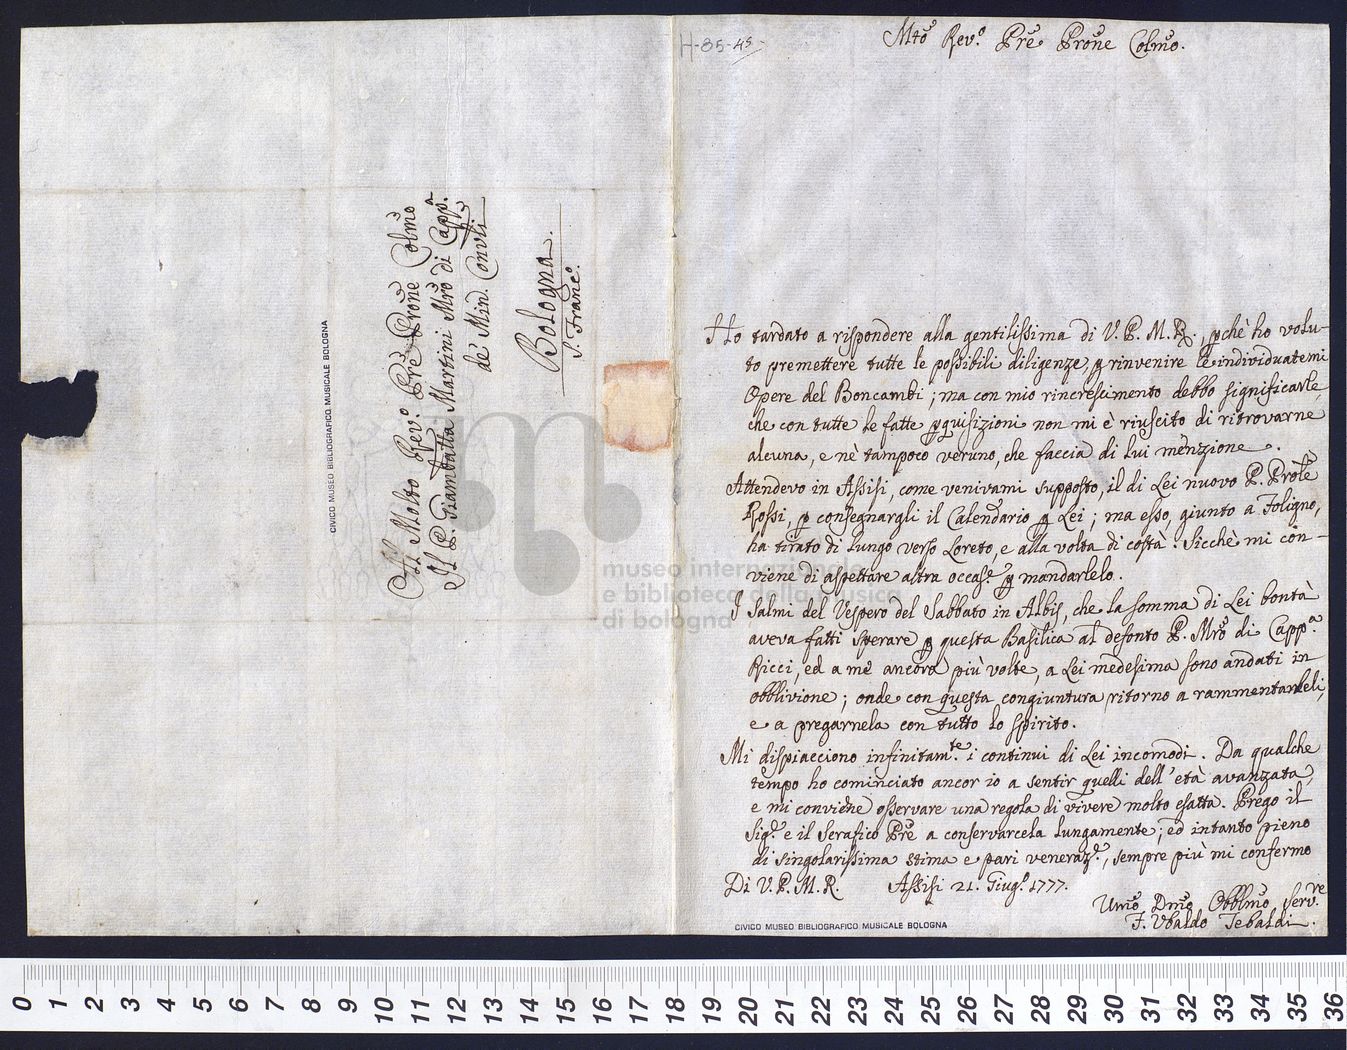 H-85-45
Mto Revo. Pre Prone Colmo.
Ho tardato a rispondere alla gentilissima di V. P. M. R., pchè ho volu-
to premettere tutte le possibili diligenze, p rinvenire le individuatemi
Opere del Boncambi; ma con mio rincrescimento debbo significarle,
che con tutte le fatte pquisizioni non mi è riuscito di ritrovarne
alcuna, e nè tampoco veruno, che faccia di lui menzione.
Attendevo in Assisi, come venivami supposto, il di Lei nuovo P. Prõle
Rossi, p consegnargli il Calendario p Lei; ma esso, giunto a Foligno,
ha tirato di lungo verso Loreto, e alla volta di costà. Sicchè mi con-
viene di aspettare altra occase. p mandarlelo.
I Salmi del Vespero del Sabbato in Albis, che la somma di Lei bontà
aveva fatti sperare p questa Basilica al defonto P. Mro di Cappa.
Ricci, ed a me ancora più volte, a Lei medesima sono andati in
obblivione; onde con questa congiuntura ritorno a rammentarleli,
e a pregarnela con tutto lo spirito.
Mi dispiacciono infinitamte. i continui di Lei incomodi. Da qualche
tempo ho cominciato ancor io a sentir quelli dell'età avanzata,
e mi conviene osservare una regola di vivere molto esatta. Prego il
Sigr. e il Serafico Pre a conservarcela lungamente; ed intanto pieno
di singolarissima stima e pari veneraze., sempre più mi confermo
Di V. P. M. R. Assisi 21. Giugo. 1777.
Umo Dmo Obblmo Servre.
F. Ubaldo Tebaldi.
Al Molto Revo. Pre Prone Colmo
Il P. Giambatta Martini Mro di Cappa.
de' Min. Convli
Bologna.
S. Franco.
CIVICO MUSEO BIBLIOGRAFICO MUSICALE BOLOGNA
CIVICO MUSEO BIBLIOGRAFICO MUSICALE BOLOGNA
museo internazionale
e biblioteca della musica
di bologna
0 1 2 3 4 5 6 7 8 9 10 11 12 13 14 15 16 17 18 19 20 21 22 23 24 25 26 27 28 29 30 31 32 33 34 35 36